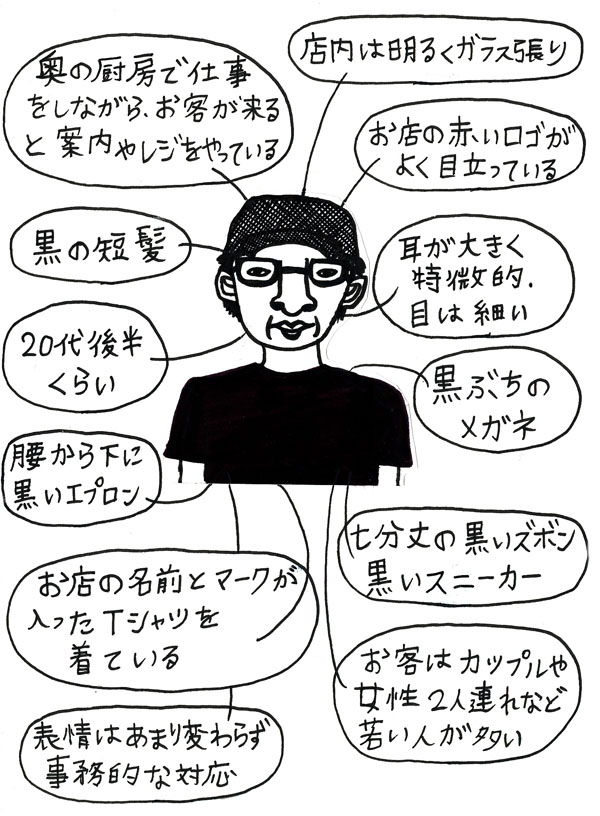 奥の厨房で仕事
をしながら、お客が来る
と案内やレジをやっている
店内は明るくガラス張り
お店の赤いロゴが
よく目立っている
黒の短髪
耳が大きく
特微的.
目は細い
20代後半
くらい
黒ぶちの
メガネ
腰から下に
黒いエプロン
七分丈の黒いズボン
黒いスニーカー
お店の名前とマークが
入ったTシャツを
着ている
お客はカップルや
女性2人連れなど
若い人が多い
表情はあまり変わらず
事務的な対応